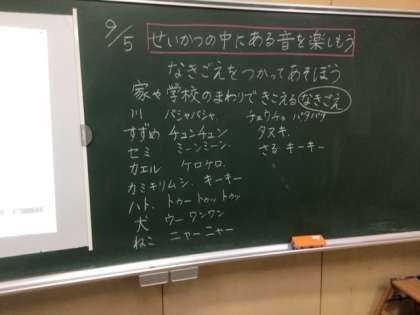 9/5 せいかつの中にある音を楽しもう
なきごえをつかってあそぼう
家や学校のまわりできこえるなきごえ
川 バシャバシャ、
すずめ チュンチュン
セミ ミーンミーン、
カエル ケロケロ、
カミキリムシ、キーキー
ハト、トゥートゥットゥッ
犬 ウー ワンワン
ねこ ニャーニャー
チュウチュウ バタバタ
タヌキ、
さる キーキー